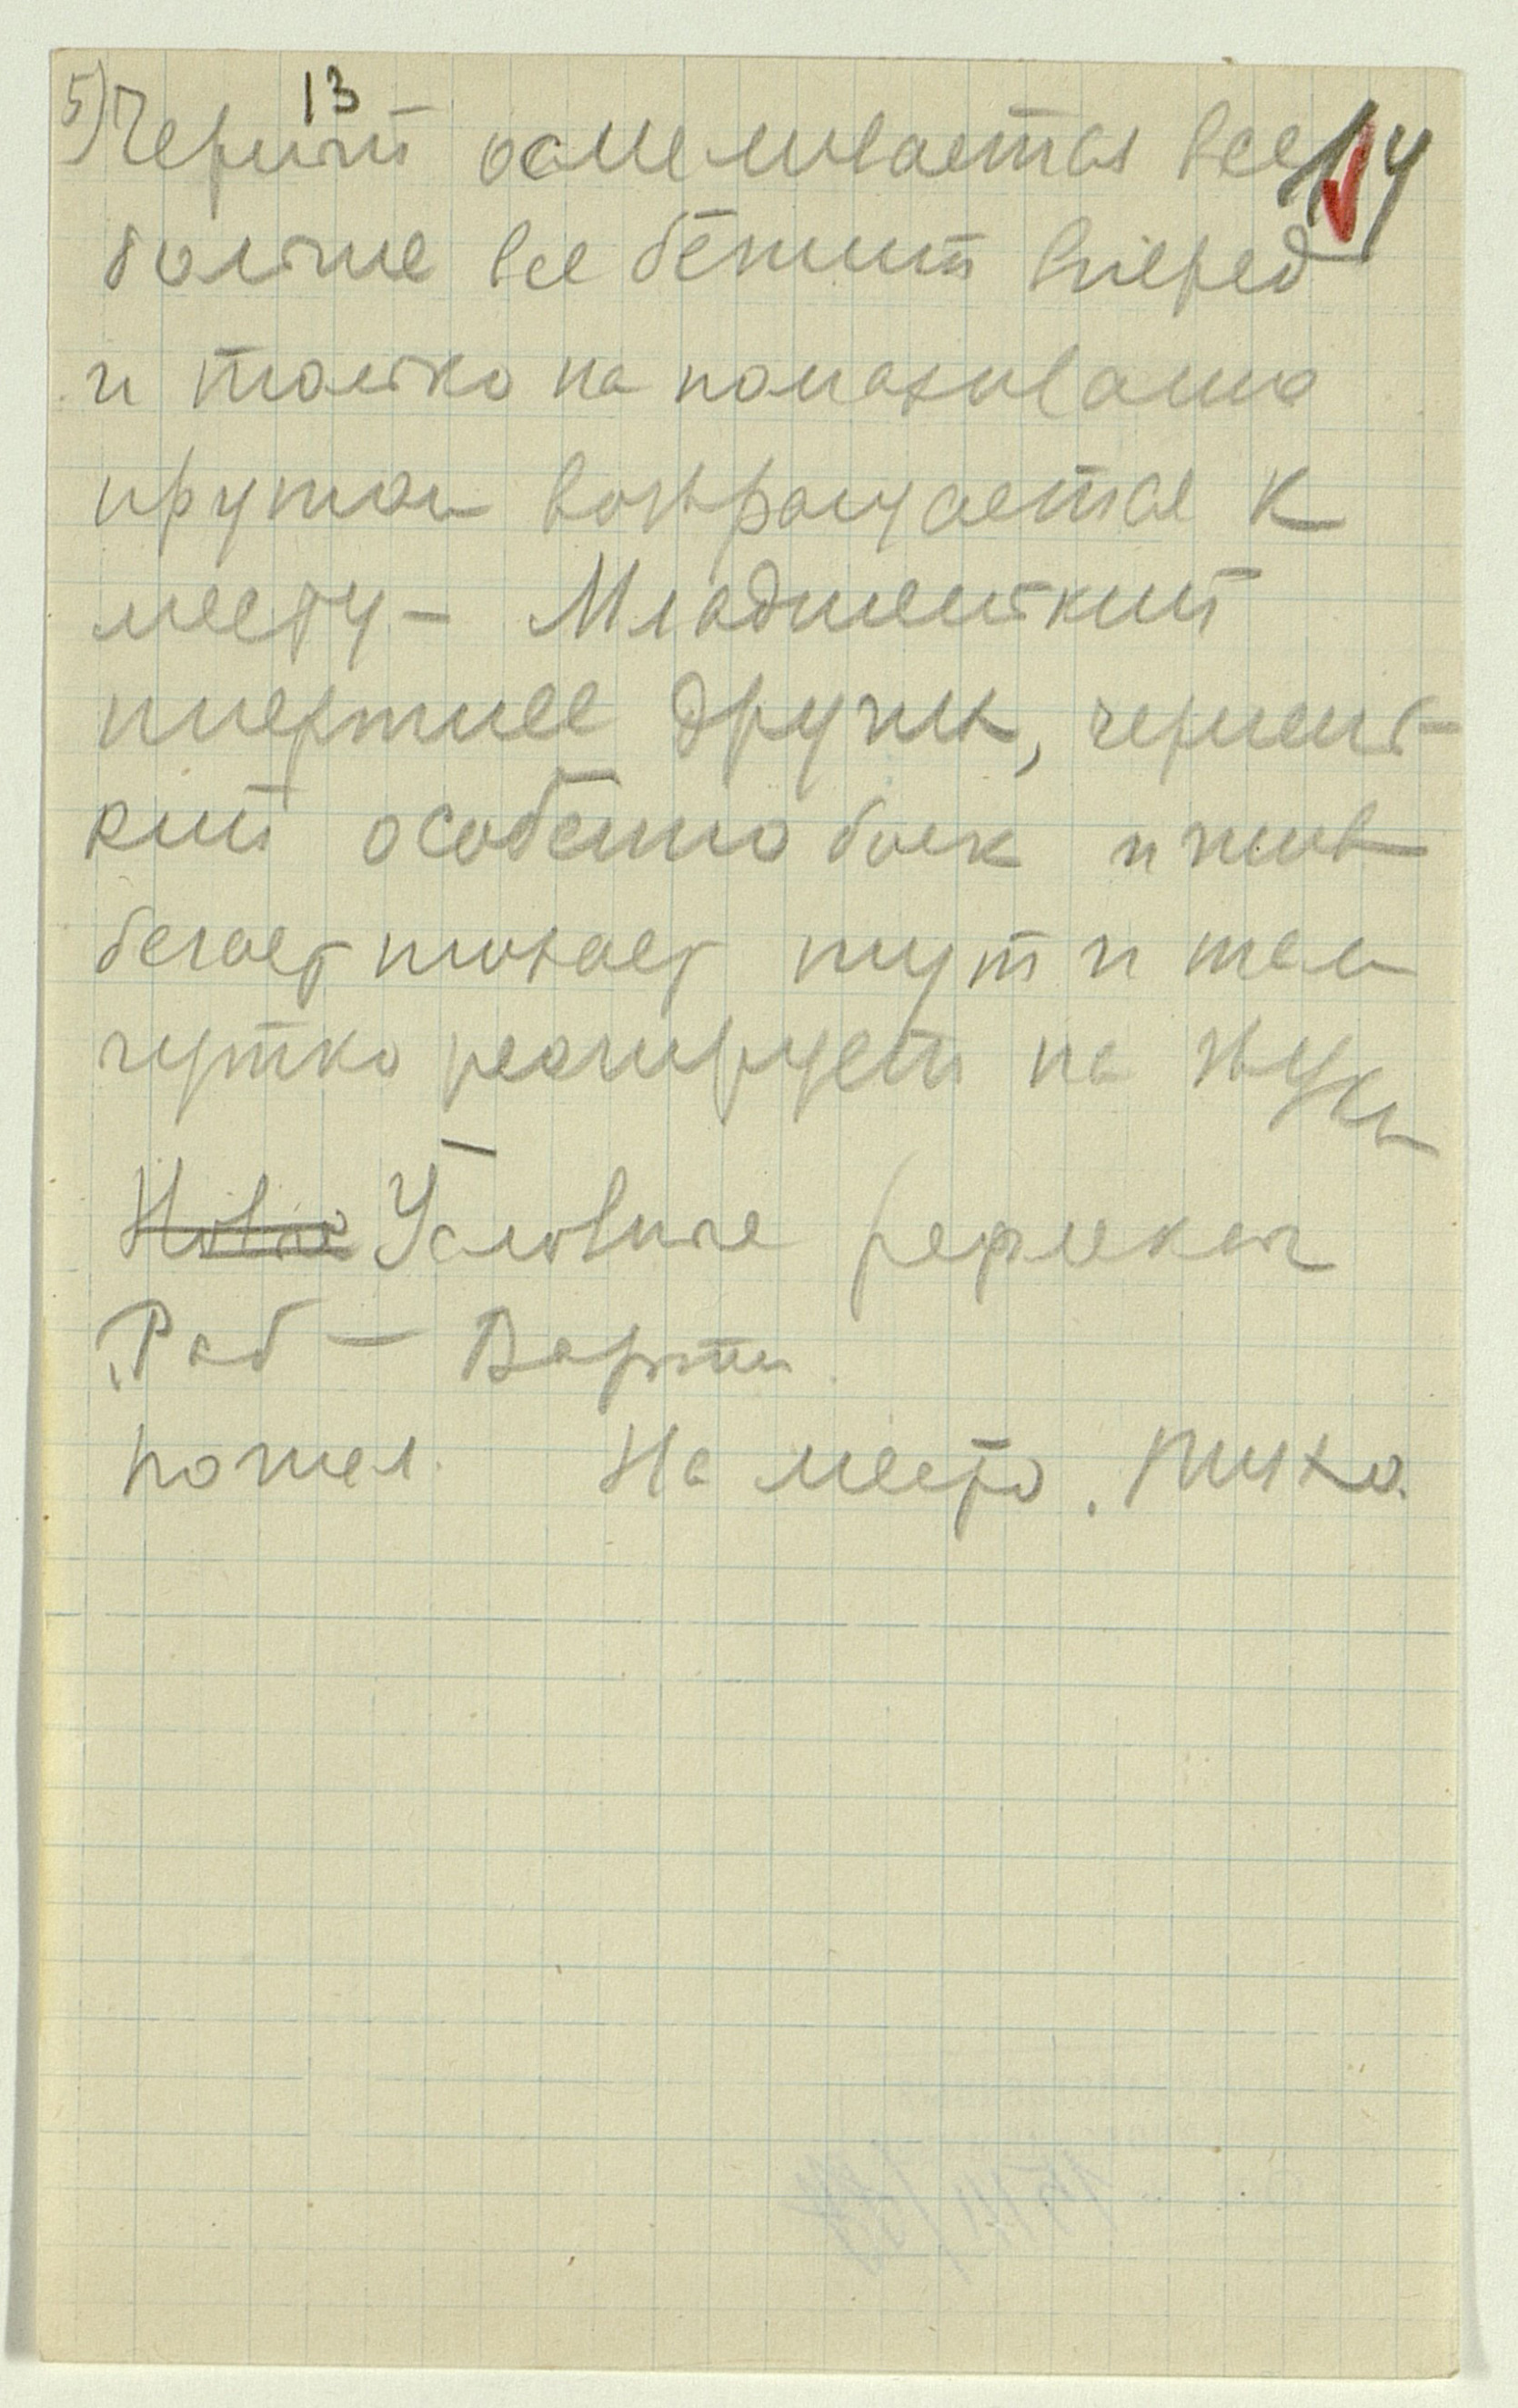 13
5) Черный осмеливается все 14
больше все бежит вперед
и только на помахивание
прутом возвращается к
месту – Младшенький
инертнее других, чернень-
кий особенно боек и жив
бегает нюхает тут и там
чутко реагирует на звуки
Новые Условные рефлексы
Раб – Варты
пошел. На место. Тихо.